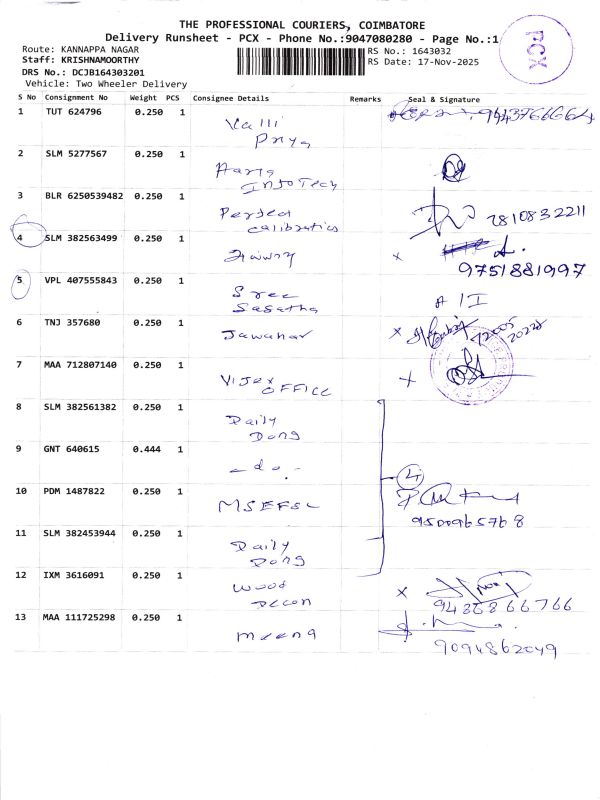 THE PROFESSIONAL COURIERS, COIMBATORE
Delivery Runsheet - PCX - Phone No.:9047080280 - Page No.:1
PCX
Route: KANNAPPA NAGAR
RS No.: 1643032
Staff: KRISHNAMOORTHY
RS Date: 17-Nov-2025
DRS No.: DCJB164303201
Vehicle: Two Wheeler Delivery
S No Consignment No Weight PCS Consignee Details Remarks Seal & Signature
1 TUT 624796 0.250 1 Valli Priya 9443766664
2 SLM 5277567 0.250 1 Infotech
3 BLR 6250539482 0.250 1 Perfect calibration 7810832211
4 SLM 382563499 0.250 1 9751881997
5 VPL 407555843 0.250 1 Sree
6 TNJ 357680 0.250 1 Jawahar
7 MAA 712807140 0.250 1 OFFICE
8 SLM 382561382 0.250 1 Daily
9 GNT 640615 0.444 1 - do. -
4
10 PDM 1487822 0.250 1 9500965768
11 SLM 382453944 0.250 1 Daily
12 IXM 3616091 0.250 1 Wood
13 MAA 111725298 0.250 1 Meena 9094862049